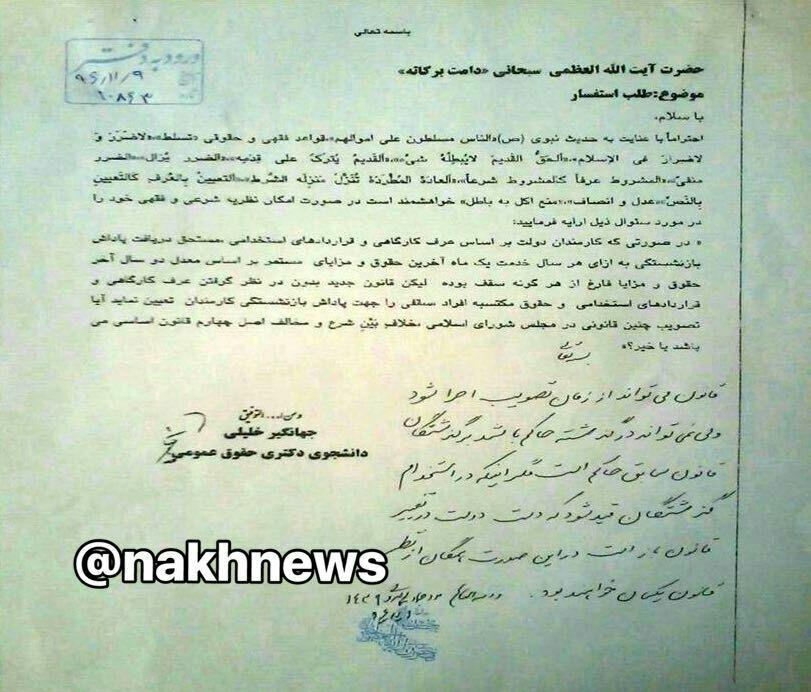 باسمه تعالی
ورود به دفتر
۹۶/۱۱/۹
۱۰۸۶۳
حضرت آیت الله العظمی سبحانی «دامت برکاته»
موضوع:طلب استفسار
با سلام،
احتراماً با عنایت به حدیث نبوی (ص)«الناس مسلطون علی اموالهم»،قواعد فقهی و حقوقی «تسلط»،«لاضَرَرَ وَ
لاضرارَ فی الإسلام»،«الحَقُّ القدیمُ لایُبطِلُهُ شیٌ»،«القدیمُ یُترَکُ علی قِدَمِه»،«الضرر یُزال»،«الضرر
منفیٌ»،«المشروط عرفاً کالمشروط شرعاً»،«العادَة المُطَّرَدَة تُنَزَّلُ منزلَه الشَّرط»،«التعیینُ بِالعُرفِ کَالتَعیینِ
بِالنَصِّ»«عدل و انصاف»،«منع اکل به باطل» خواهشمند است در صورت امکان نظریه شرعی و فقهی خود را
در مورد سئوال ذیل ارایه فرمایید:
« در صورتی که کارمندان دولت بر اساس عرف کارگاهی و قراردادهای استخدامی ،مستحق دریافت پاداش
بازنشستگی به ازای هر سال خدمت یک ماه آخرین حقوق و مزایای مستمر بر اساس معدل دو سال آخر
حقوق و مزایا فارغ از هر گونه سقف بوده لیکن قانون جدید بدون در نظر گرفتن عرف کارگاهی و
قراردادهای استخدامی و حقوق مکتسبه افراد سقفی را جهت پاداش بازنشستگی کارمندان تعیین نماید آیا
تصویب چنین قانونی در مجلس شورای اسلامی ،خلاف بَیِّنِ شرع و مخالف اصل چهارم قانون اساسی می
باشد یا خیر؟»
بسمه تعالی
قانون می تواند از زمان تصویب اجرا شود
ولی نمی تواند در گذشته حاکم باشد بر گذشتگان
قانون سابق حاکم است مگر اینکه در استخدام
گذشتگان قید شود که دست دولت در تغییر
قانون باز است در این صورت همگان از نظر
قانون یکسان خواهند بود.
۱۴۳۹
و من ا... التوفیق
جهانگیر خلیلی
دانشجوی دکتری حقوق عمومی
@nakhnews